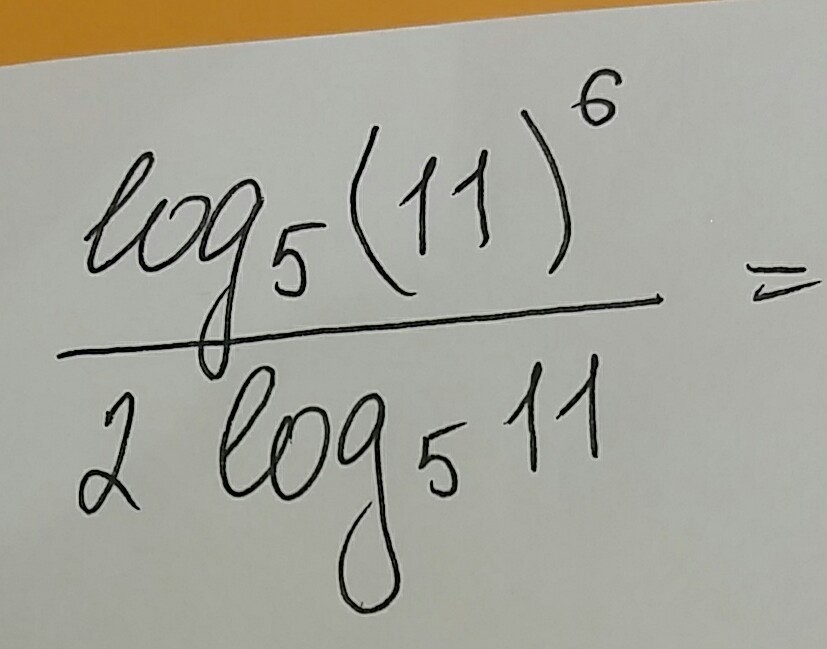 log₅(11)⁶
2 log₅11 =